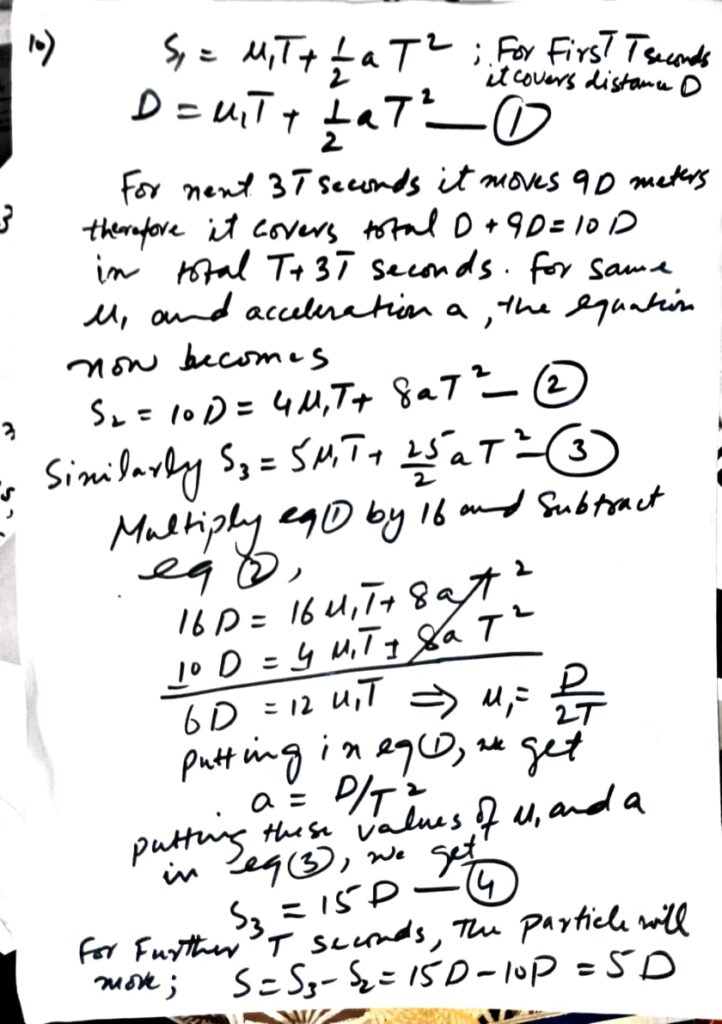 10) S₁ = u₁T + 1/2 a T² ; For First T seconds
it covers distance D
D = u₁T + 1/2 aT² — ①
For next 3T seconds it moves 9D meters
therefore it covers total D + 9D = 10D
in total T+3T seconds. for same
u₁ and acceleration a, the equation
now becomes
S₂ = 10D = 4u₁T + 8aT² — ②
Similarly S₃ = 5u₁T + 25/2 aT² — ③
Multiply eq① by 16 and Subtract
eq ②,
16D = 16u₁T + 8aT²
10D = 4u₁T + 8aT²
6D = 12u₁T ⇒ u₁ = D/2T
putting in eq①, we get
a = D/T²
putting these values of u₁ and a
in eq③, we get
S₃ = 15D — ④
For Further T seconds, The particle will
move; S = S₃ - S₂ = 15D - 10D = 5D